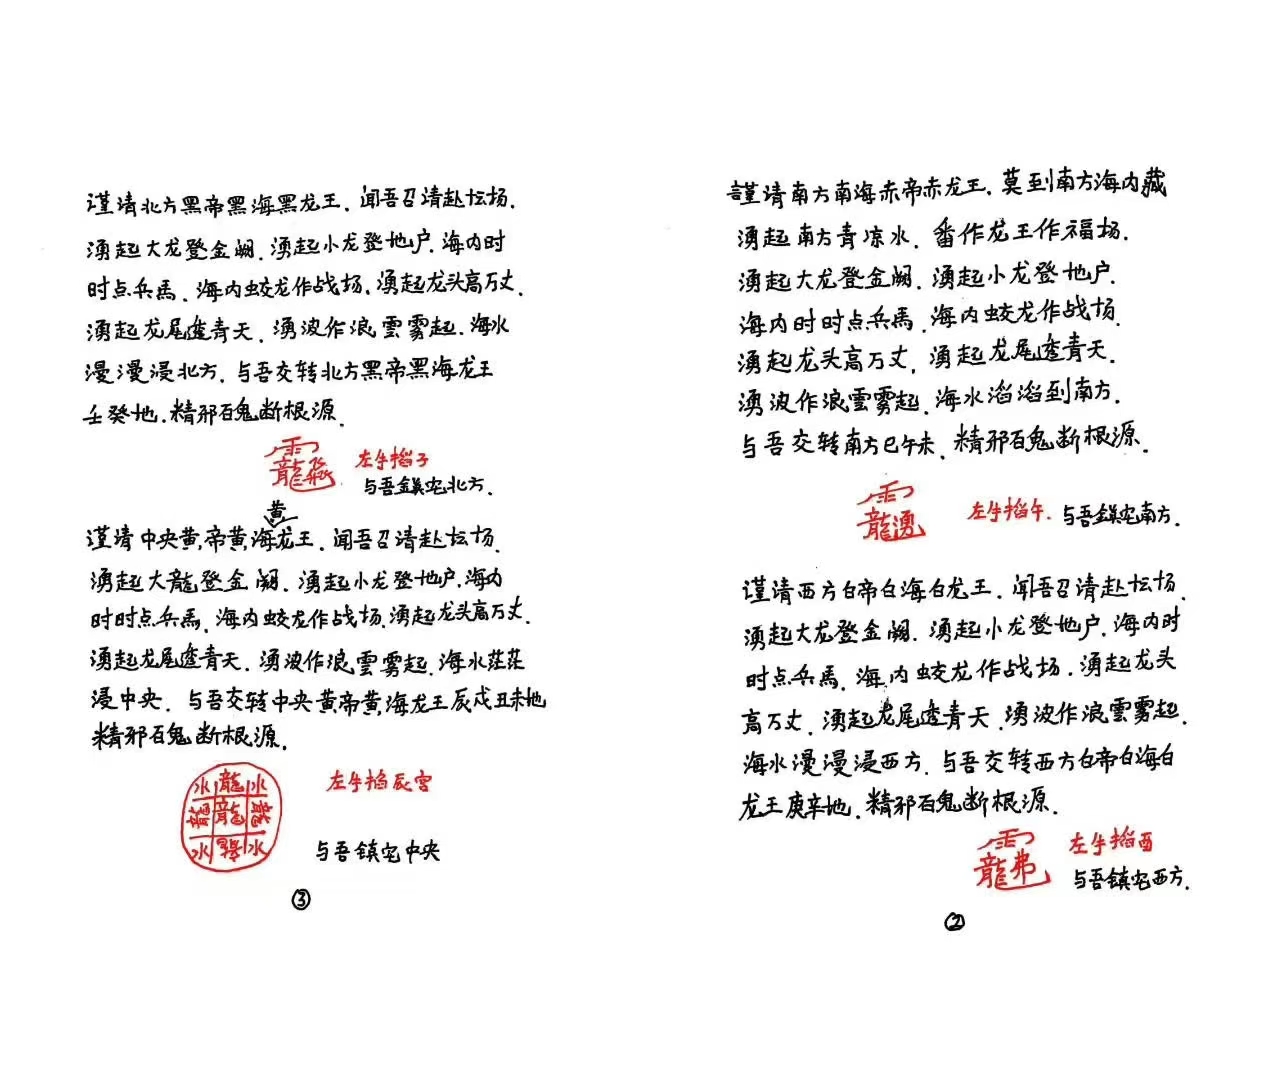 謹请南方南海赤帝赤龙王.莫至到南方海内藏
湧起南方青凉水.番作龙王作福场.
湧起大龙登金阙.湧起小龙登地户.
海内时时点兵馬.海内蛟龙作战场.
湧起龙头高万丈.湧起龙尾透青天.
湧波作浪雲雾起.海水滔滔到南方.
与吾交转南方巳午未.精邪百鬼断根源.
左手掐午.与吾鎮宅南方.
谨请西方白帝白海白龙王.闻吾召请赴坛场.
湧起大龙登金阙.湧起小龙登地户.海内时
时点兵馬.海内蛟龙作战场.湧起龙头
高万丈.湧起龙尾透青天.湧波作浪雲雾起.
海水漫漫浸西方.与吾交转西方白帝白海白
龙王庚辛地.精邪百鬼断根源.
左手掐酉
与吾镇宅西方.
②
谨请北方黑帝黑海黑龙王.闻吾召请赴坛场.
湧起大龙登金阙.湧起小龙登地户.海内时
时点兵馬.海内蛟龙作战场.湧起龙头高万丈.
湧起龙尾透青天.湧波作浪雲雾起.海水
漫漫浸北方.与吾交转北方黑帝黑海龙王
壬癸地.精邪百鬼断根源.
左手掐子
与吾鎮宅北方.
黄
谨请中央黄帝黄海龙王.闻吾召请赴坛场.
湧起大龍登金阙.湧起小龙登地户.海内
时时点兵馬.海内蛟龙作战场.湧起龙头高万丈.
湧起龙尾透青天.湧波作浪雲雾起.海水茫茫
浸中央.与吾交转中央黄帝黄海龙王辰戌丑未地
精邪百鬼断根源.
水龍水
龍龍龍
水龍水
左手掐辰宫
与吾镇宅中央
③